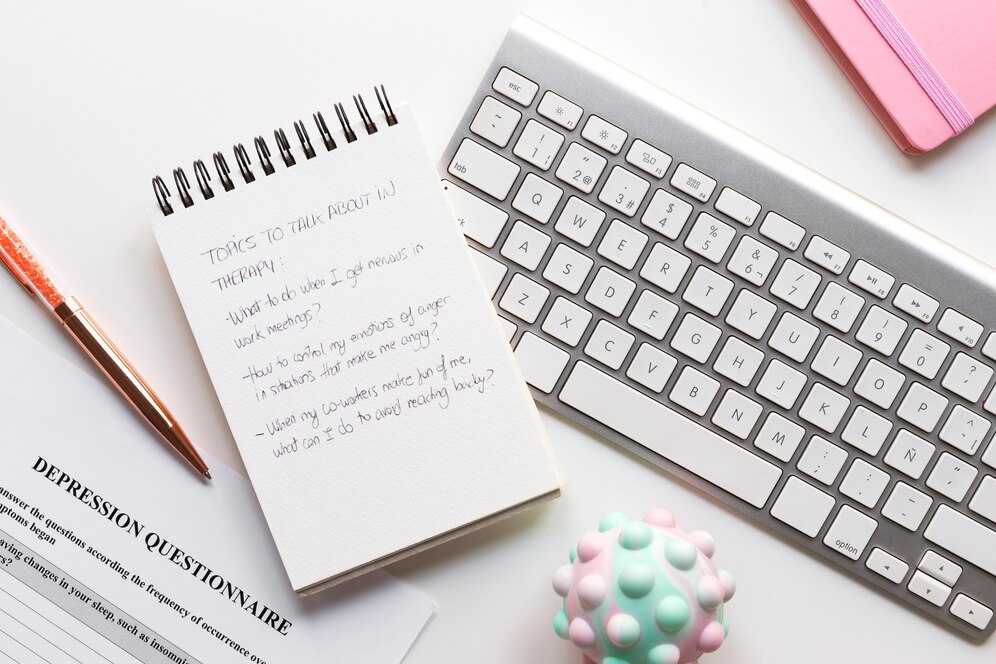 TOPICS TO TALK ABOUT IN
THERAPY:
-What to do when I get nervous in
work meetings?
-How to control my emotions of anger
in situations that make me angry?
- When my co-workers make fun of me,
what can I do to avoid reacting badly?
DEPRESSION QUESTIONNAIRE
answer the questions according the frequency of occurrence
began
changes in your sleep, such as
esc
F1
F2
F3
F4
F5
F6
F7
F8
F9
F10
~
! 1
2 @
3 #
$ 4
% 5
& 6 ¬
/ 7
( 8
) 9
= 0
? '
tab
Q W E R T Y U I O P
A S D F G H J K L Ñ
Z X C V B N M ; , : . _ -
option